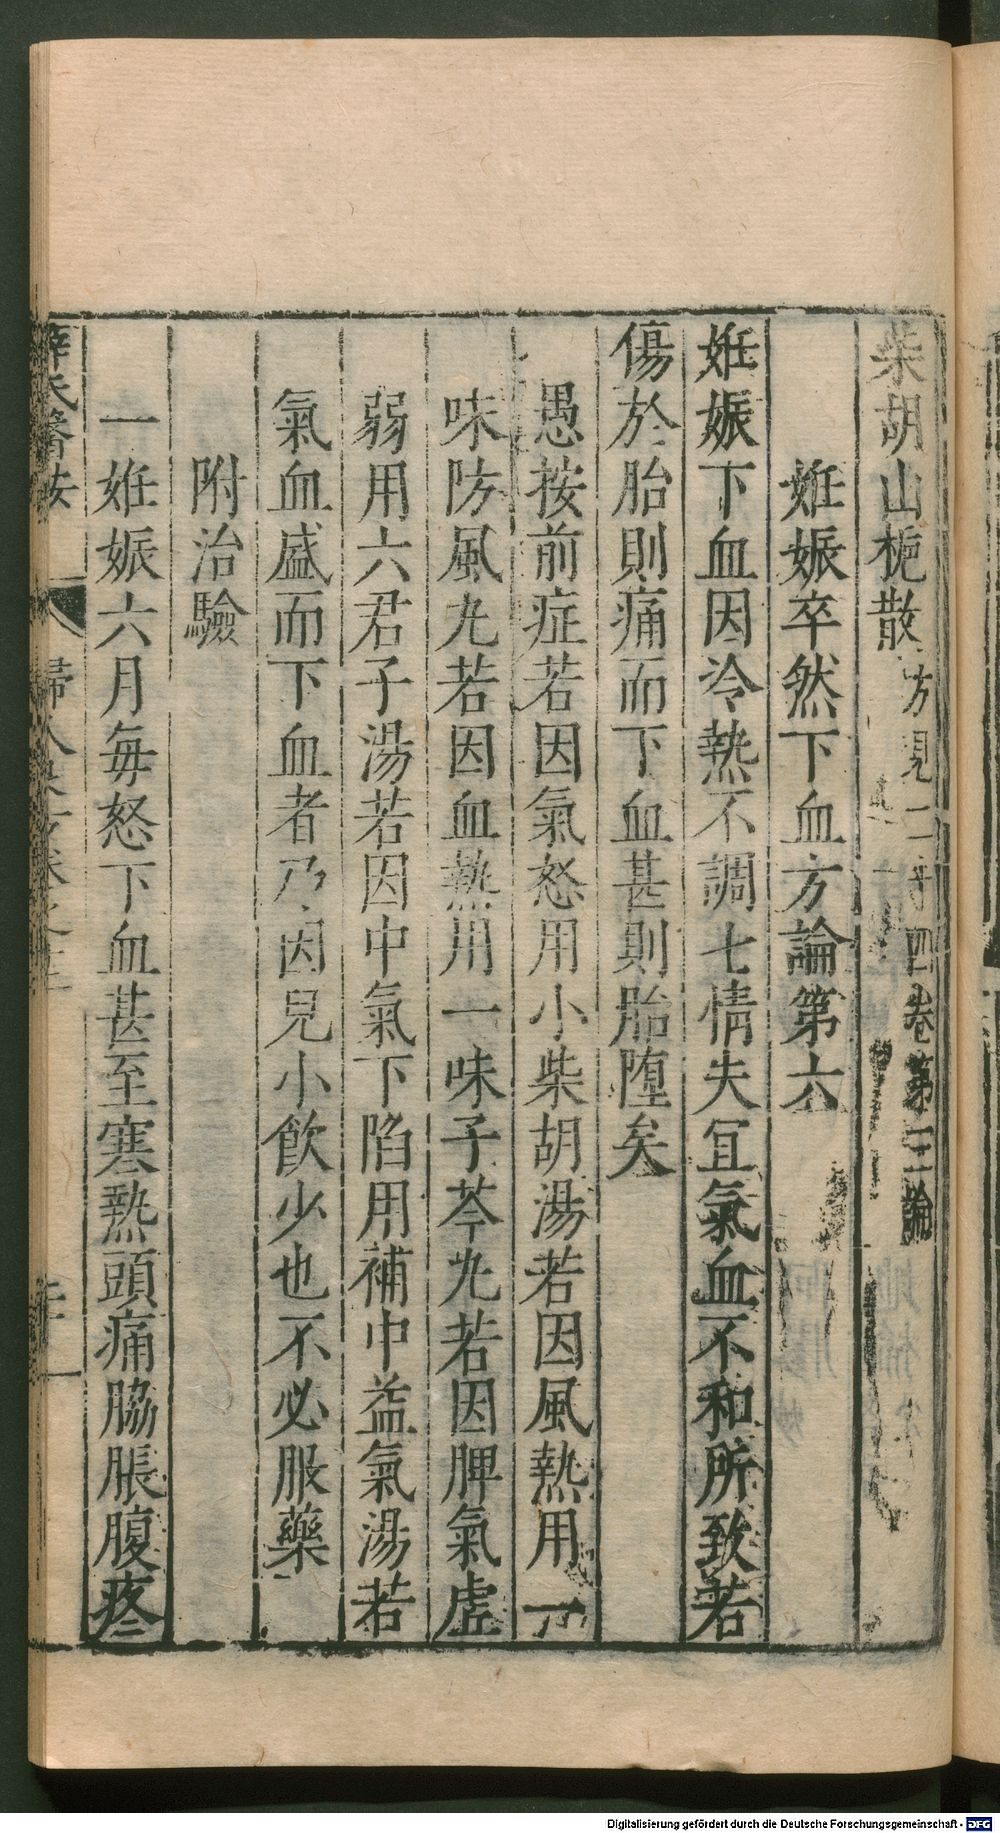 柴胡山梔散方見二十四卷第三論
妊娠卒然下血方論第六
妊娠下血因冷熱不調七情失宜氣血不和所致若
傷於胎則痛而下血甚則胎墮矣
愚按前症若因氣怒用小柴胡湯若因風熱用一
味防風丸若因血熱用一味子芩丸若因脾氣虛
弱用六君子湯若因中氣下陷用補中益氣湯若
氣血盛而下血者乃因兒小飲少也不必服藥
附治驗
一妊娠六月每怒下血甚至寒熱頭痛脇脹腹疼
薛氏醫按 婦人良方卷之三
Digitalisierung gefördert durch die Deutsche Forschungsgemeinschaft - DFG